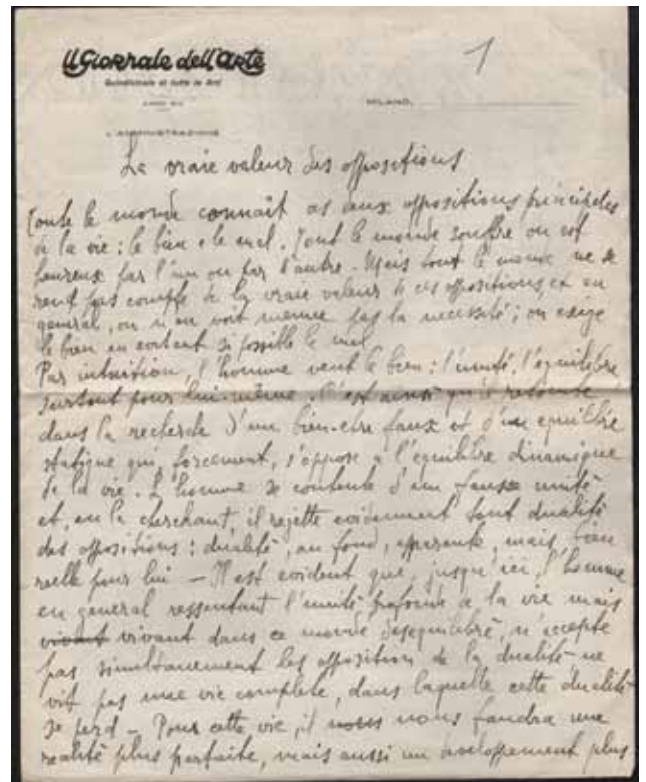 Il Giornale dell'Arte
Quindicinale di tutte le Arti
1
MILANO,
L'AMMINISTRAZIONE
La vraie valeur des oppositions
Toute le monde connaît as deux oppositions principales
de la vie : le bien e le mal. Tout le monde souffre ou est
heureux par l'un ou par l'autre - Mais tout le monde ne se
rend pas compte de la vraie valeur de ces oppositions, et en
general, on n'en voit meme pas la necessité ; on exige
le bien en evitant si possible le mal
Par intuition, l'homme veut le bien : l'unité, l'equilibre
surtout pour lui-même. C'est ainsi qu'il retombe
dans la recherche d'un bien-etre faux et d'un equilibre
statique qui, forcement, s'oppose a l'equilibre dinamique
de la vie. L'homme se contente d'un fausse unité
et, en la cherchant, il rejette evidemment tout dualité
des oppositions : dualité, au fond, apparente, mais bien
reelle pour lui - Il est evident que, jusqu'ici, l'homme
en general ressentant l'unité profonde de la vie mais
vivant vivant dans ce monde desequilibré, n'accepte
pas simultanement les opposition de la dualité - ne
vit pas une vie complete, dans laquelle cette dualité
se perd - Pour cette vie, il nous nous faudra une
realité plus parfaite, mais aussi un developpement plus